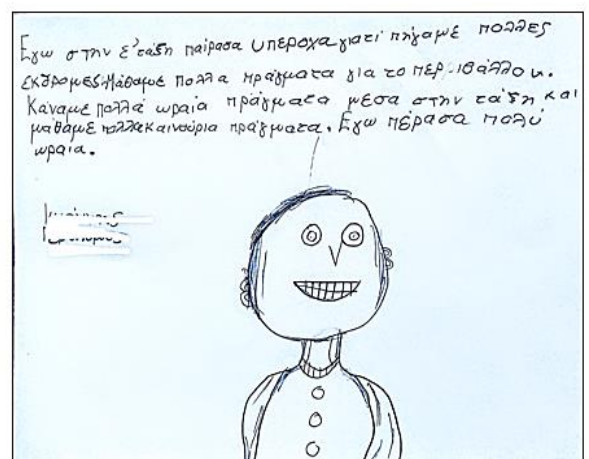 Εγω στην έ τάξη παίρασα υπεροχα γιατί πήγαμε πολλες
εκδρομες. Μάθαμε πολλα πράγματα για το περιβάλλον.
Κάναμε πολλά ωραία πράγματα μεσα στην τάξη και
μάθαμε πολλα καινούρια πράγματα. Εγω πέρασα πολύ
ωραια.